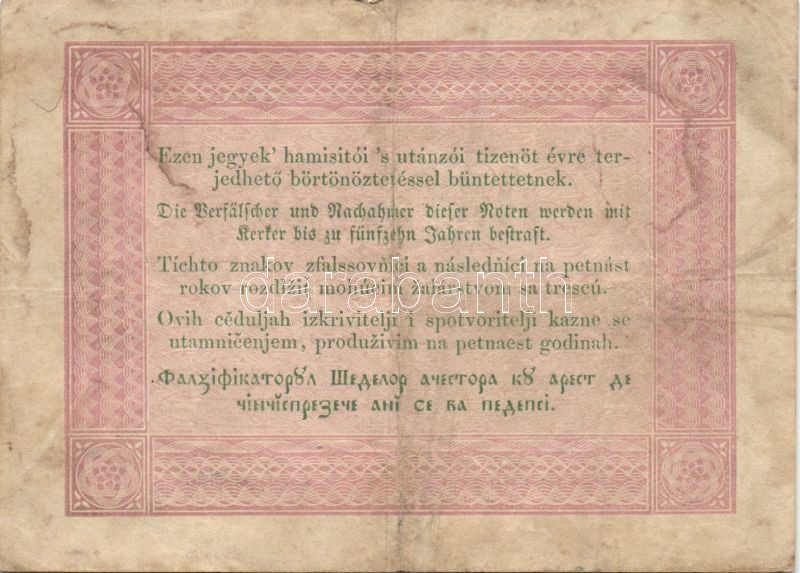 Ezen jegyek' hamisitói 's utánzói tizenöt évre ter-
jedhető börtönöztetéssel büntettetnek.
Die Verfälscher und Nachahmer dieser Noten werden mit
Kerker bis zu fünfzehn Jahren bestraft.
Tichto znakov zfalssovňjci a následňíci na petnást
rokov rozdížiť mohúcim žalárstvom sa trescú.
darabanth
Ovih cěduljah izkrivitelji i spotvoritelji kazne se
utamničenjem, produživim na petnaest godinah.
Фалзіфікаторꙋл Шеделор ачестора кꙋ арест де
чінчіспрезече ані се ва педепсі.